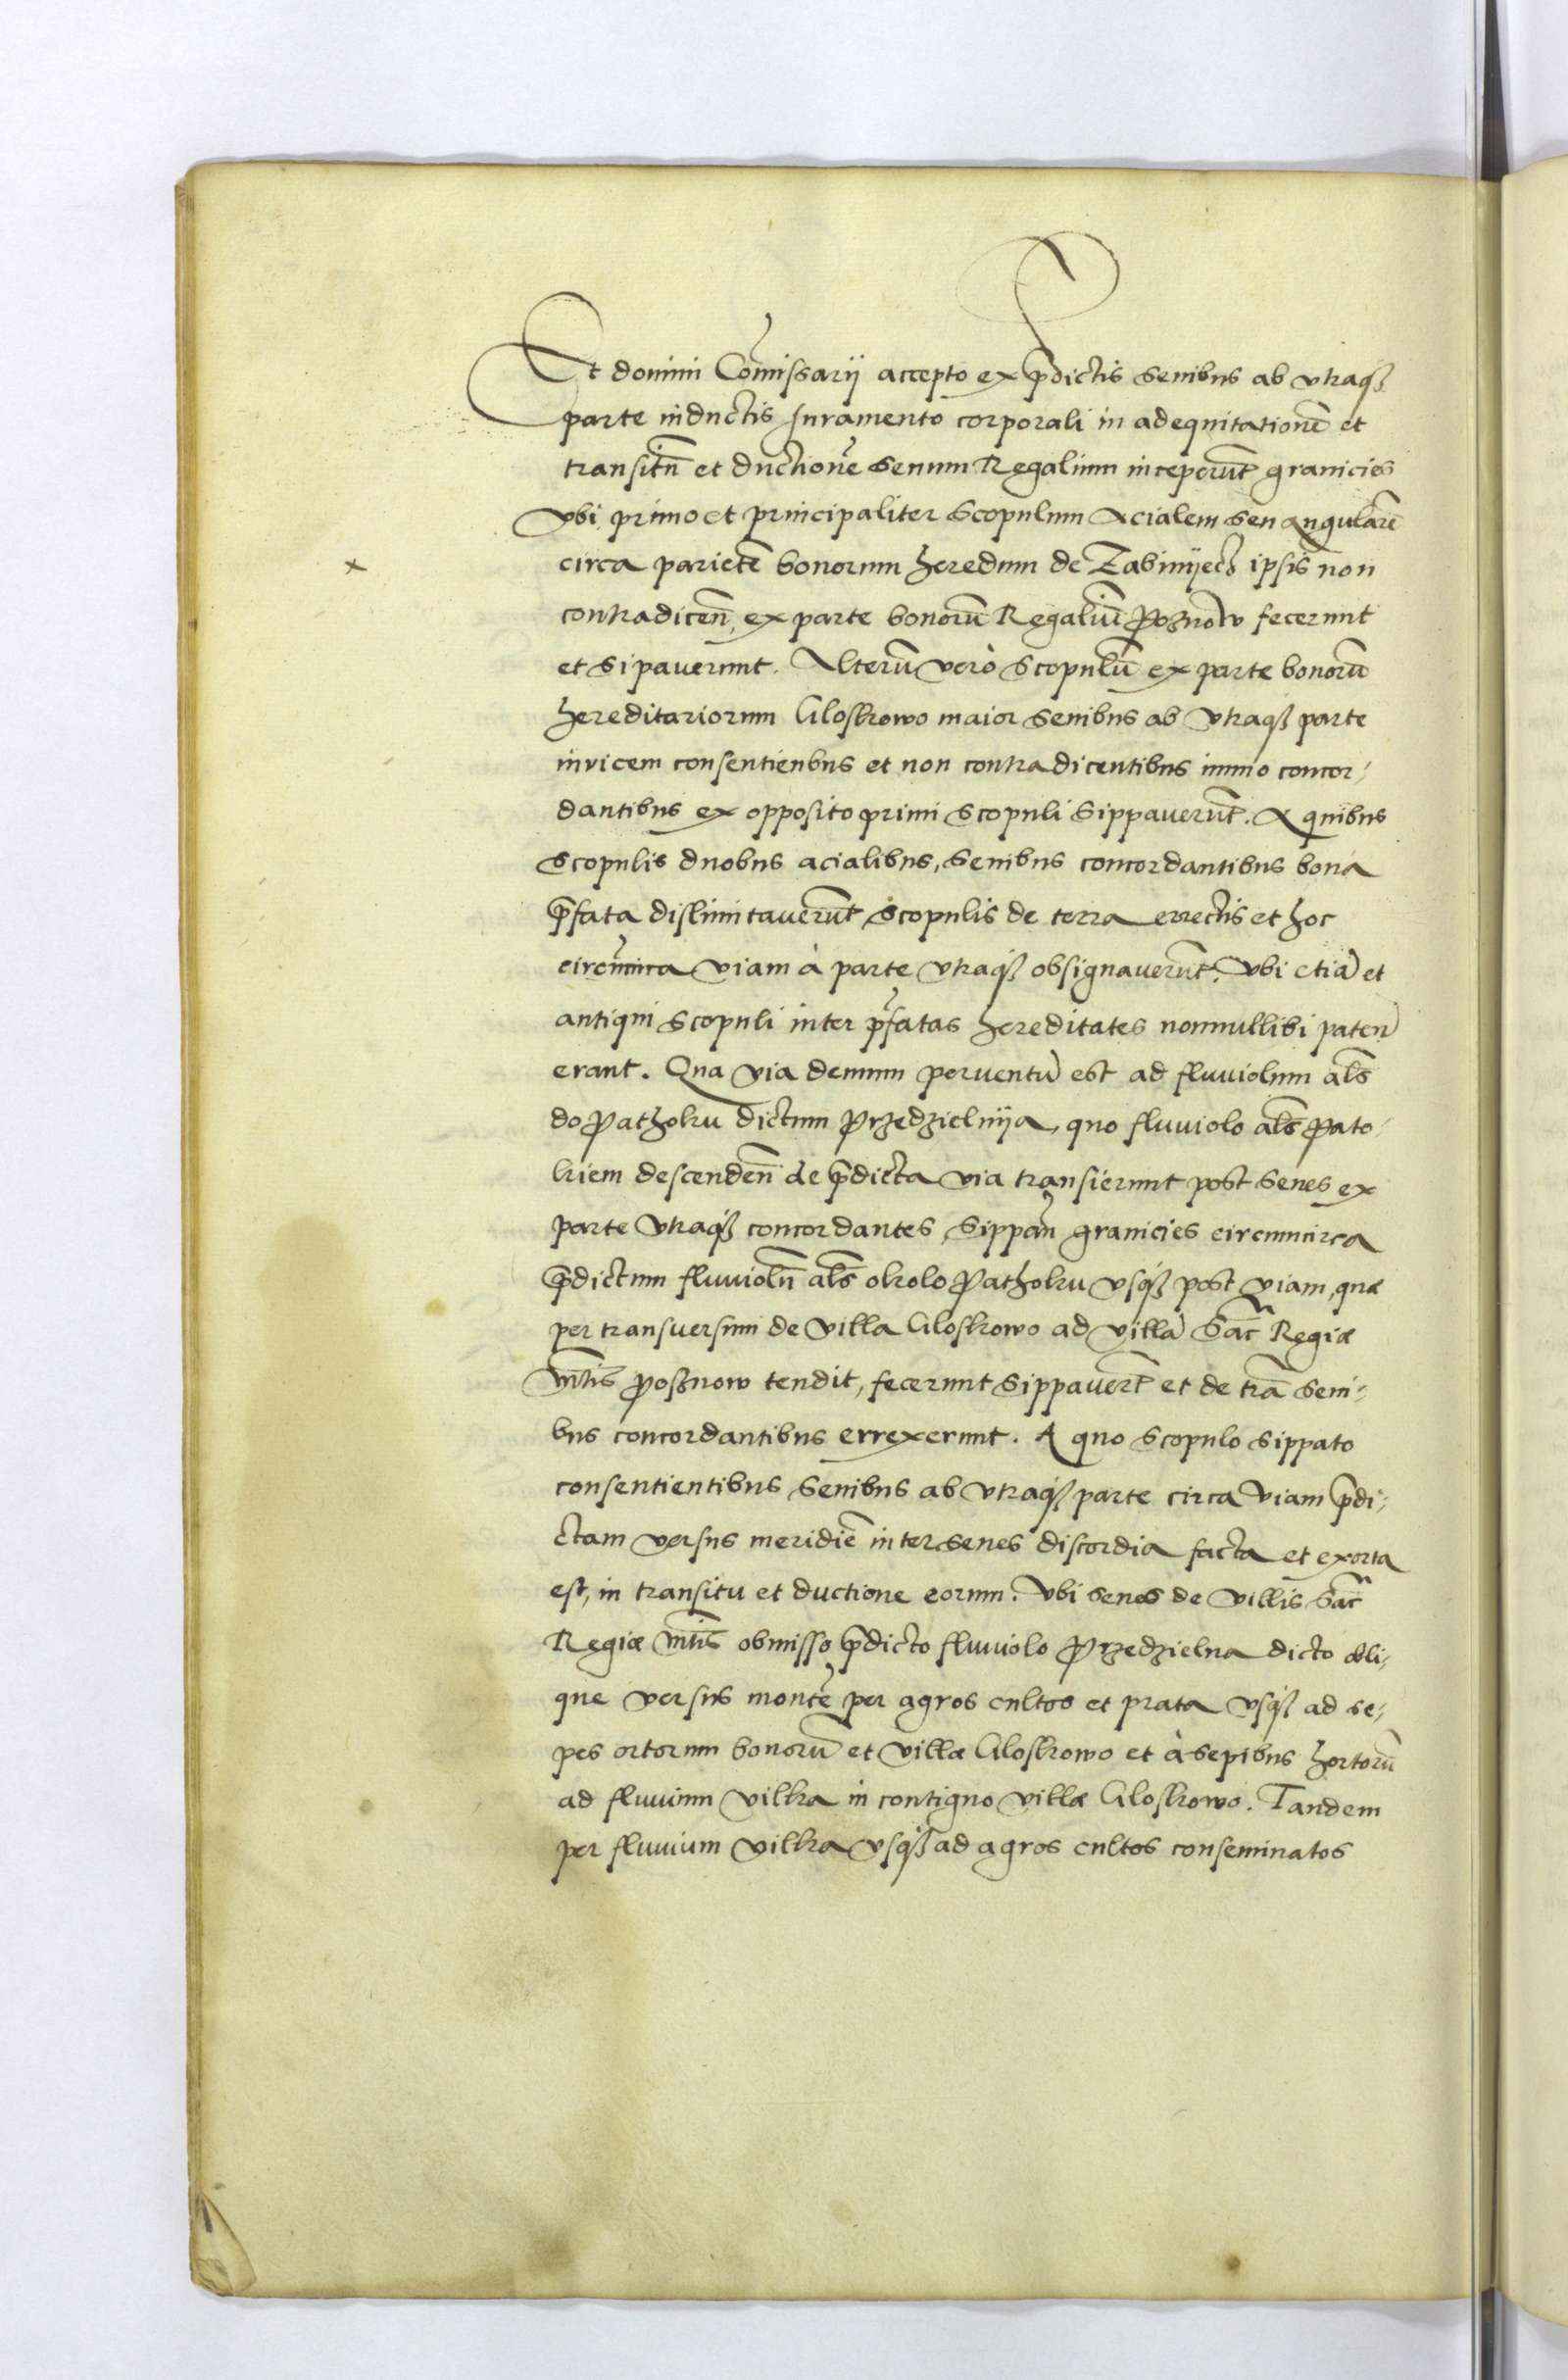 Et domini Com̃issarij accepto ex p̃dictis senibus ab vtraqȝ
parte inductis Juramento corporali in adequitationẽ et
transitũ et ductionẽ senum Regalium inceperũt granicies
vbi primo et principaliter Scopulum Acialem seu angularẽ
circa parietẽ bonorum heredum de Zabinijecz ipsis non
contradiceñ, ex parte bonorũ Regaliũ Poznow fecerunt
et sipauerunt. Alterũ verò Scopulũ ex parte bonorũ
hereditariorum Gloskowo maior senibus ab vtraqȝ parte
invicem consentienbus et non contradicentibus immo concor-
dantibus ex opposito primi Scopuli Sippauerũt. A quibus
Scopulis duobus acialibus, senibus concordantibus bona
p̃fata dislimitauerũt scopulis de terra errectis et hoc
circũcirca viam à parte vtraqȝ obsignauerũt. Vbi etiã et
antiqui Scopuli inter p̃fatas hereditates nonnullibi pateñ
erant. Qua via demum perventũ est ad fluuiolum als̃
do Pathoku dictum Przedzielnija, quo fluuiolo als̃ Pato-
kiem descendeñ de p̃dicta via transierunt post senes ex
parte vtraqȝ concordantes, Sippañ granicies circumcirca
p̃dictum fluuiolũ als̃ okolo Pathoku vsqȝ post viam, quæ
per transversum de villa Gloskowo ad villã Sac̃ Regiæ
Mt̃is Posznow tendit, fecerunt Sippauert̃ et de tr̃a seni-
bus concordantibus errexerunt. A quo Scopulo sippato
consentientibus Senibus ab vtraqȝ parte circa viam p̃di-
ctam versus meridiẽ inter senes discordia facta et exorta
est, in transitu et ductione eorum. Vbi senes de villis Sac̃
Regiæ Mt̃is obmisso p̃dicto fluuiolo Przedzielna dicto obli-
que versus montẽ per agros cultos et prata vsqȝ ad se-
pes ortorum bonorũ et villæ Gloskowo et à sepibus hortorũ
ad fluuium Vilka in contiguo villæ Gloskowo. Tandem
per fluuium Vilka vsqȝ ad agros cultos conseminatos